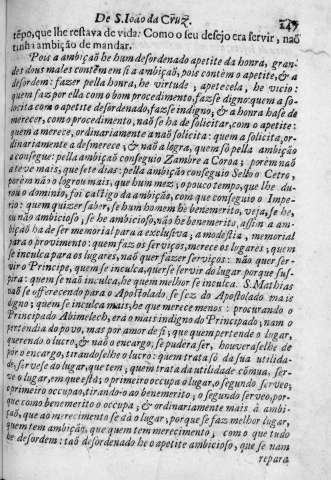 De S. Ioão da Cruz. 247
tẽpo, que lhe restava de vida: Como o seu desejo era servir, naõ
tinha ambiçaõ de mandar.
Pois a ambiçaõ he hum desordenado apetite da honra, gran-
des dous males contẽm em si a ambiçaõ, pois contém o apetite, & a
desordem: fazer pella honra, he virtude, apetecela, he vicio:
quem faz por ella com o bom procedimento, faz se digno: quem a so-
licita com o apetite desordenado, faz se indigno, & a honra hase de
merecer, como procedimento, naõ se ha de solicitar, com o apetite:
quem a merece, ordinariamente a naõ solicita: quem a solicita, or-
dinariamente a desmerece; & naõ a logra, quem só pella ambiçaõ
a consegue: pella ambiçaõ conseguio Zambre a Coroa; porém naõ
a teve mais, que sete dias: pella ambiçaõ conseguio Selho o Cetro,
porém naõ o logrou mais, que hum mez; o pouco tempo, que lhe du-
rou o dominio, foi castigo da ambiçaõ, com que conseguio o Impe-
rio: quem quizer saber, se hum homem he benemerito, veja, se he,
ou naõ ambicioso, se he ambicioso, naõ he benemerito, assim a am-
biçaõ ha de ser memorial para a exclusiva, a modestia, memorial
para o provimento: quem faz os serviços, merece os lugares; quem
se inculca para os lugares, naõ quer fazer serviços: naõ quer ser-
vir o Principe, quem se inculca, quer se servir do lugar porque sus-
pira: quem se naõ inculca, he quem melhor se inculca. S. Mathias
naõ se offerecendo para o Apostolado, se fez do Apostolado mais
digno; quem se inculca mais, he que merece menos: procurando o
Principado Abimelech, era o mais indigno do Principado; nam o
pertendia do povo, mas por amor de si; que quem pertende o lugar,
querendo o lucro, & naõ o encargo, se pudera ser, houvera selhe de
pór o encargo, tirandoselhe o lucro: quem trata só da sua utilida-
de, serve se do lugar, que tem; quem trata da utilidade cõmua, ser-
ve o lugar, em que està; o primeiro occupa o lugar, o segundo serveo;
o primeiro occupao, tirando-o ao benemerito; o segundo serveo, por-
que como benemerito o occupa; & ordinariamente mais à ambi-
çaõ, que ao merecimento se dà o lugar; porque se faz melhor lugar,
quem tem ambiçaõ, que quem tem merecimento; com o que tudo
he desordem: taõ desordenado he o apetite ambicioso, que se nam
repara